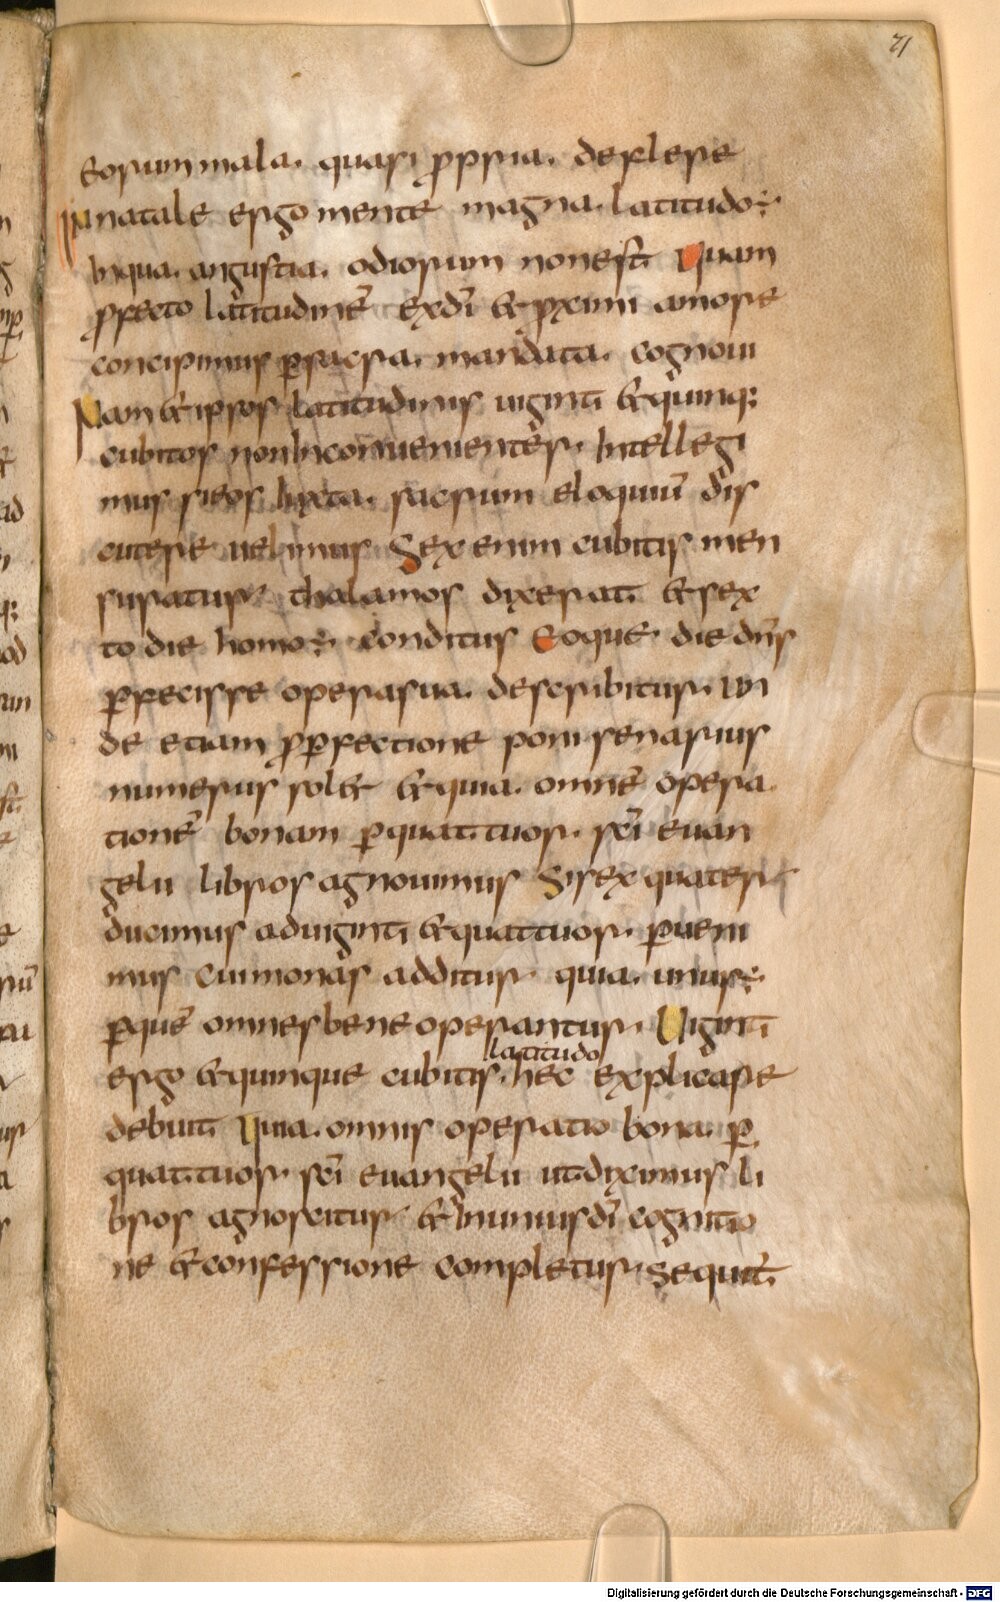 21
eorum mala. quasi ꝓpria. deflere
In tale ergo mente magna. latitudo ÷
In qua. angustia. odiorum non est Quam
ꝓfecto latitudinē ex dī & ꝓximi amore
concipimus ꝑ sacra. mandata. cognoui
Nam & ipsos latitudinis uiginti & quinq;
cubitos non inconuenienter. Intellegi
mus si eos Iuxta. sacrum eloquiū dis
cutere uelimus Sex enim cubitis men
suratus thalamos dixerat & sex
to die homo ÷ conditus Eoque. die dn̄s
ꝑfecisse opera sua. describitur. un
de etiam ꝓ ꝑfectione poni senarius
numerus sol& & quia. omnē opera
tionē bonam ꝑ quattuor. sc̄i euan
gelii libros agnouimus Si sex quater
ducimus ad uiginti & quattuor. ꝑueni
mus cui monas additur quia. unus ÷
ꝑ quē omnes bene operantur. Uiginti
latitudo
ergo & quinque cubitis. hec explicare
debuit Quia. omnis operatio bona. ꝑ
quattuor. sc̄i euangelii ut diximus li
bros agnoscitur & In unius dī cognitio
ne & confessione completur. Sequit̄
Digitalisierung gefördert durch die Deutsche Forschungsgemeinschaft - DFG